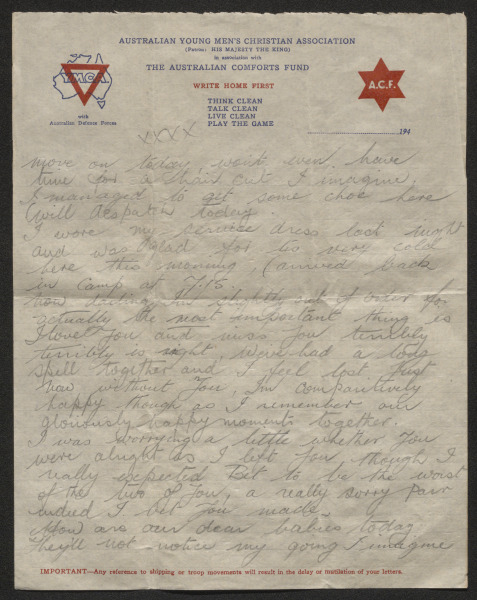 AUSTRALIAN YOUNG MEN'S CHRISTIAN ASSOCIATION
(Patron: HIS MAJESTY THE KING)
in association with
THE AUSTRALIAN COMFORTS FUND
YMCA
with
Australian Defence Forces
A.C.F.
WRITE HOME FIRST
THINK CLEAN
TALK CLEAN
LIVE CLEAN
PLAY THE GAME
194
XXXX
move on today wont even have
time for a hair cut I imagine.
I managed to get some choc here
(will despatch today.
I wore my service dress last night
and was glad for its very cold
here this morning (arrived back
in camp at 7.15
now darling, this slightly out of order for
actually the most important thing is
I love you and miss you terribly
terribly is right, we've had a long
spell together and I feel lost just
now without you, Im comparitively
happy though as I remember our
gloriously happy moments together.
I was worrying a little whether you
were alright as I left you, though I
really expected Bet to be the worst
of the two of you, a really sorry pair
indeed I bet you made.
How are our dear babies today
they'll not notice my going I imagine
IMPORTANT—Any reference to shipping or troop movements will result in the delay or mutilation of your letters.